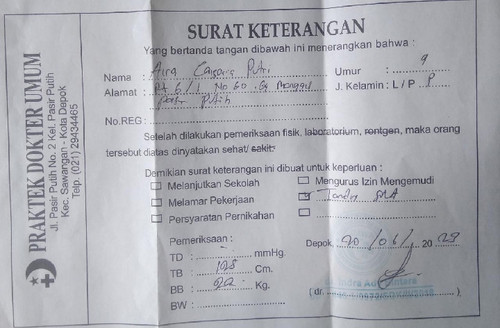 PRAKTEK DOKTER UMUM
Jl. Pasir Putih No. 2 Kel. Pasir Putih
Kec. Sawangan - Kota Depok
Telp. (021) 29434465
SURAT KETERANGAN
Yang bertanda tangan dibawah ini menerangkan bahwa :
Nama : Aira Putri Umur : 9
Alamat : Rt 6/1 No 60 J. Kelamin : L / P P
Putih
No.REG :
Setelah dilakukan pemeriksaan fisik, laboratorium, rontgen, maka orang
tersebut diatas dinyatakan sehat/ sakit:
Demikian surat keterangan ini dibuat untuk keperluan :
Melanjutkan Sekolah Mengurus Izin Mengemudi
Melamar Pekerjaan
Persyaratan Pernikahan
Pemeriksaan :
Depok, 20/06/ 2023
TD : mmHg.
TB : 128 Cm.
BB : 22 Kg.
BW :
(dr. )